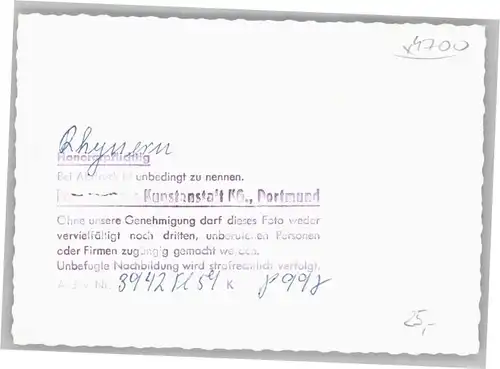 v4700
Rhynern
Honorarpflichtig
Bei Abdruck ist unbedingt zu nennen.
Kunstanstalt KG., Dortmund
Ohne unsere Genehmigung darf dieses Foto weder
vervielfältigt noch dritten, unberufenen Personen
oder Firmen zugängig gemacht werden.
Unbefugte Nachbildung wird strafrechtlich verfolgt.
Archiv Nr. 3942 K
25,-